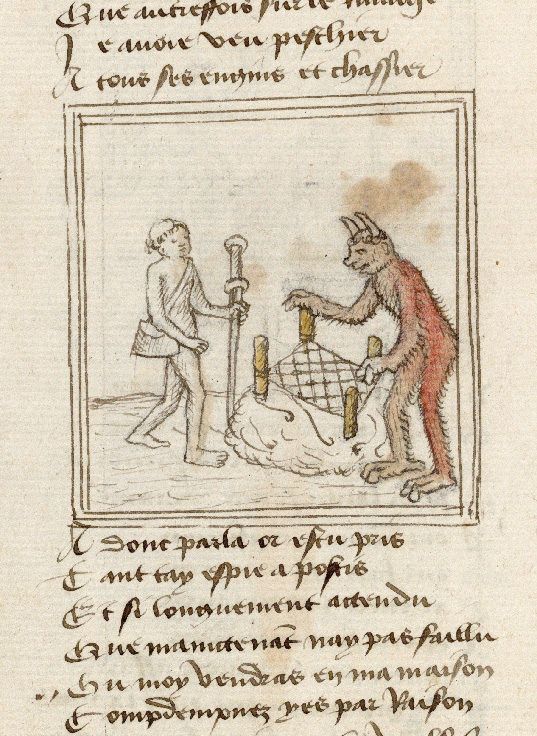 Que autreffois sur le riuaige
Je auoie veu peschier
A tous ses engins et chassier
A donc parla or es tu pris
Tant tay espie a postis
Et si longuement attendu
Que maintenāt nay pas faillu
Tu moy vendras en ma maison
Compdempnez yes par Raison